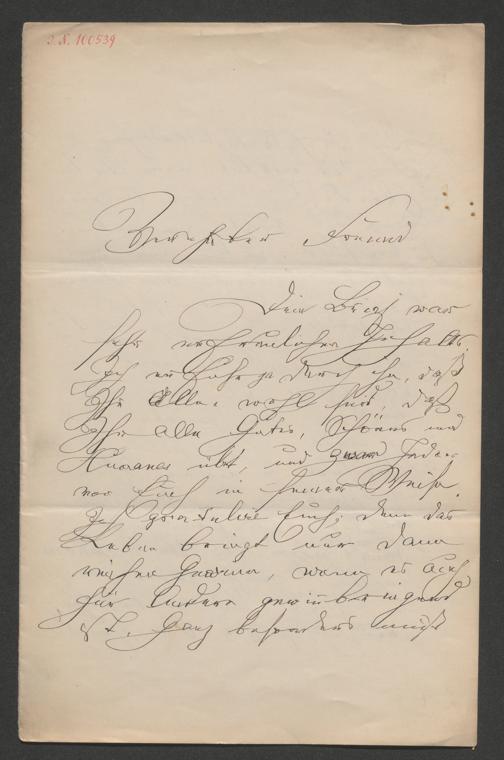 I.N. 100539
Verehrter Freund
Dein Brief war
sehr erfreulichen Inhalts.
Ich erfahre ja durch ihn, daß
Ihr Alle wohl seid, daß
Ihr alle Gutes, Schönes und
Humanes übt, und zwar Jeder
von Euch in seiner Weise.
Ich gratulire Euch; denn das
Leben bringt nur dann
reichen Gewinn, wenn es auch
für Andere gewinnbringend
ist. Ganz besonders muß